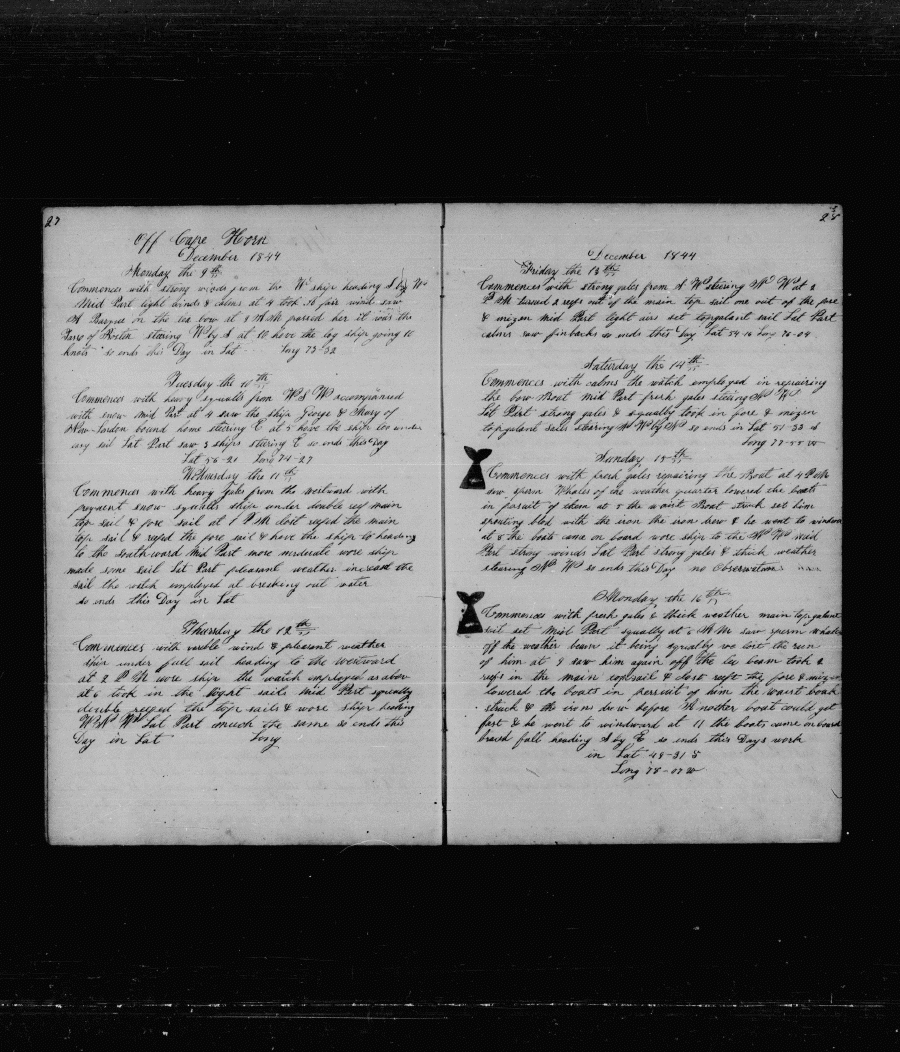 27
Off Cape Horn
December 1844
Monday the 9th
Commences with strong winds from the W ship heading S by W
Mid Part light winds & calms at 4 took A fair wind saw
A Barque on the lee bow at 9 AM passed her it was the
of Boston stearing W by S at 10 hove the log ship going 10
knots so ends this Day in Lat Long 73-32
Tuesday the 10th
Commences with heavy squalls from W S W accompanied
with snow Mid Part at 4 saw the ship George & Mary of
New London bound home steering E at 5 hove the ship too under
easy sail Lat Part saw 3 ships steering E so ends this Day
Lat 56-21 Long 74-27
Wednesday the 11th
Commences with heavy Gales from the westward with
frequent snow squalls ship under double reef main
top sail & fore sail at 1 P M clost reefed the main
top sail & reefed the fore sail & hove the ship to heading
to the southward Mid Part more moderate wore ship
made some sail Lat Part pleasant weather increased the
sail the watch employed at breaking out water
so ends this Day in Lat
Thursday the 12th
Commences with varible wind & pleasant weather
ship under full sail heading to the westward
at 2 P M wore ship the watch employed as above
at 6 took in the light sails Mid Part squally
double reefed the top sails & wore ship heading
W N W Lat Part much the same so ends this
Day in Lat Long
28
December 1844
Friday the 13th
Commences with strong gales from S W steering N W at 2
P M turned 2 reefs out of the main top sail one out of the fore
& mizen Mid Part light airs set topgalant sail Lat Part
calms saw finbacks so ends this Day Lat 54-16 Long 76-04
Saturday the 14th
Commences with calms the watch employed in repairing
the bow Boat Mid Part fresh gales steering N W
Lat Part strong gales & squally took in fore & mizen
topgalant sails stearing N W by N so ends in Lat 51-33 S
Long 77-55 W
Sunday 15th
Commences with fresh gales repairing the Boat at 4 P M
saw sperm Whales of the weather quarter lowered the boats
in pursuit of them at 5 the waist Boat struck sot him
spouting blod with the iron the iron drew & he went to windward
at 8 the boats came on board wore ship to the W Mid
Part strong winds Lat Part strong gales & thick weather
stearing N W so ends this Day no Observations
Monday the 16th
Commences with fresh gales & thick weather main topgalant
sail set Mid Part squally at 6 A M saw sperm whale
off the weather beam it being squally we lost the run
of him at 9 saw him again off the lee beam took 2
reefs in the main topsail & clost reeft the fore & mizen
lowered the boats in persuit of him the waist boat
struck & the irons drew before Another boat could get
fast & he went to windward at 11 the boats came on board
braced full heading S by E so ends this Days work
in Lat 49-31 S
Long 78-07 W